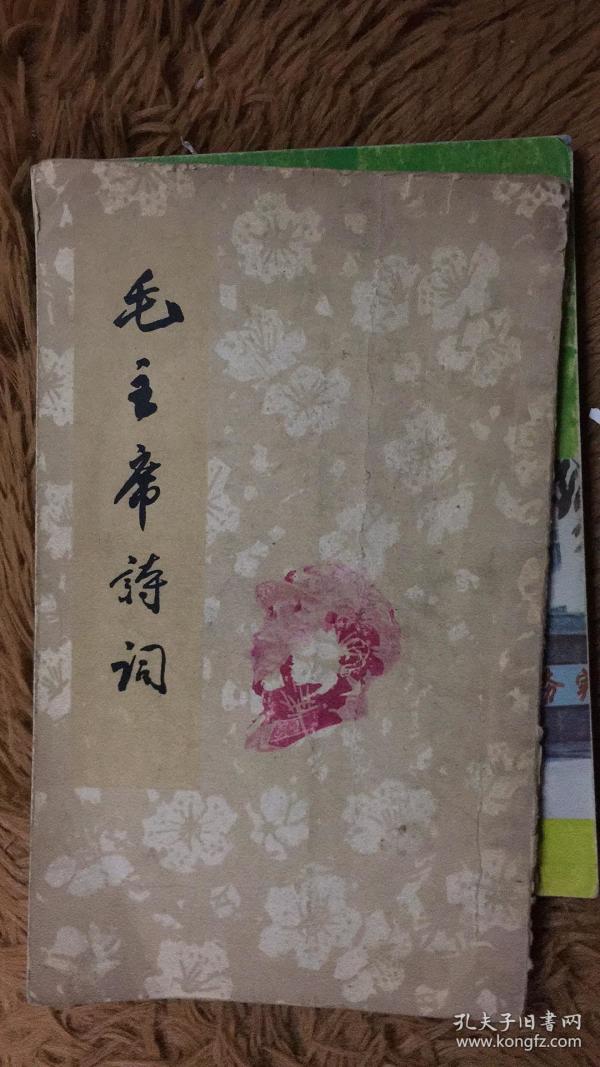 毛主席詩詞
务家
孔夫子旧書网
www.kongfz.com